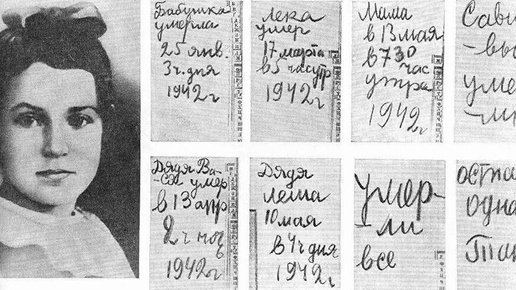 Бабушка
умерла
25 янв.
3 ч. дня
1942 г
Лека
умер
17 марта
в 5 час утр
1942 г
Мама
в 13 мая
в 7 30
час
утра
1942 г
Сави
-вы
умер
-ли
Дядя Ва-
ся умер
в 13 апр
2 ч ноч
1942 г
Дядя
Леша
10 мая
в 4 ч дня
1942 г
умер-
ли
все
оста
одна
Тан